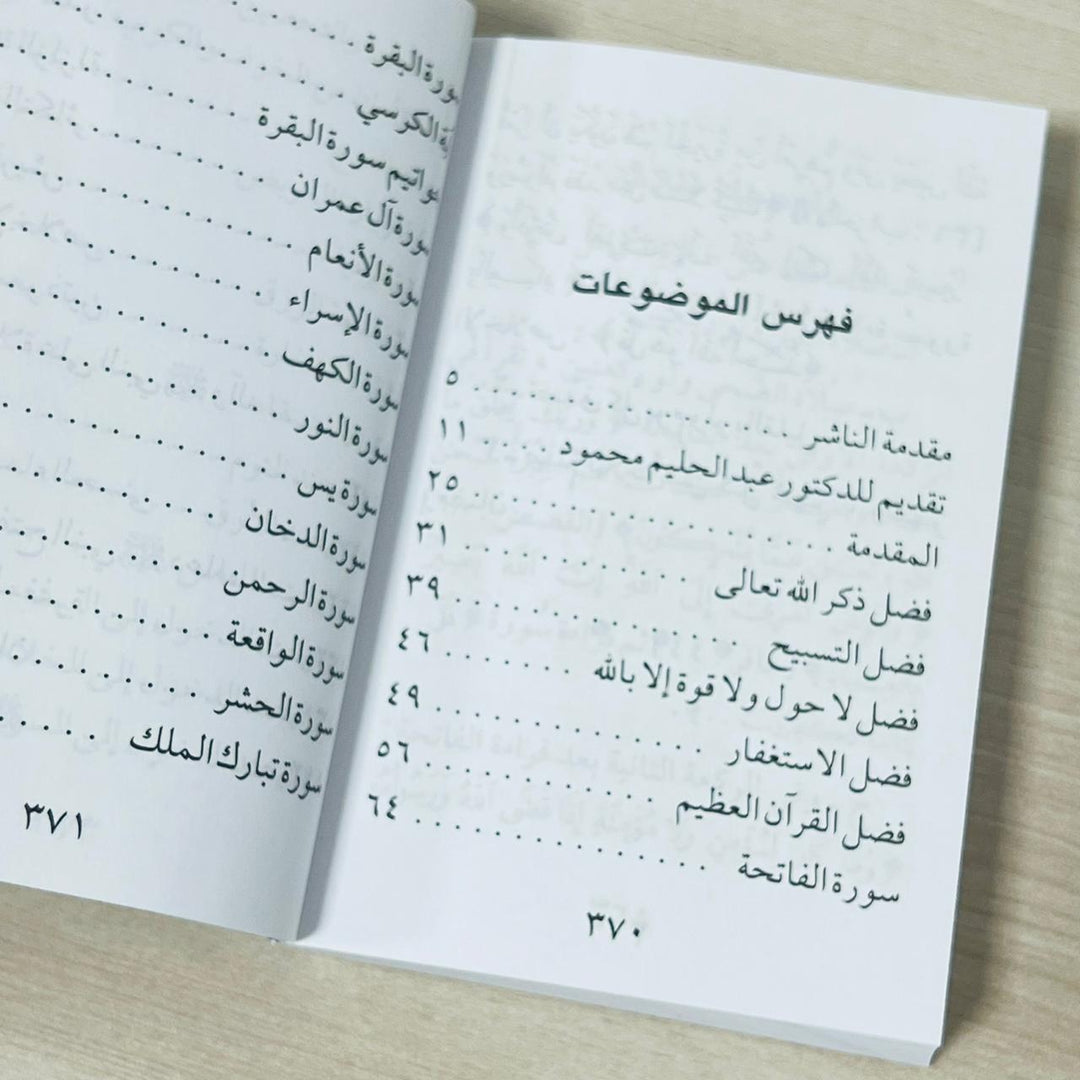 فهرس الموضوعات
مقدمة الناشر . . . . . . . . . . . . . . . . ٥
تقديم للدكتور عبد الحليم محمود . . . . ١١
المقدمة . . . . . . . . . . . . . . . . . ٢٥
فضل ذكر الله تعالى . . . . . . . . . . . ٣١
فضل التسبيح . . . . . . . . . . . . . . ٣٩
فضل لا حول ولا قوة إلا بالله . . . . . . . ٤٦
فضل الاستغفار . . . . . . . . . . . . . ٤٩
فضل القرآن العظيم . . . . . . . . . . . ٥٦
سورة الفاتحة . . . . . . . . . . . . . . ٦٤
٣٧٠
سورة البقرة . . . . . . . .
آية الكرسي . . . . . . . . . . . .
خواتيم سورة البقرة . . . . . . . . .
سورة آل عمران . . . . . . . . . . .
سورة الأنعام . . . . . . . . . . . .
سورة الإسراء . . . . . . . . . . . .
سورة الكهف . . . . . . . . . . . .
سورة النور . . . . . . . . . . . .
سورة يس . . . . . . . . . . . .
سورة الدخان . . . . . . . . . .
سورة الرحمن . . . . . . . . . .
سورة الواقعة . . . . . . . . . .
سورة الحشر . . . . . . . . . .
سورة تبارك الملك . . . . . . .
٣٧١